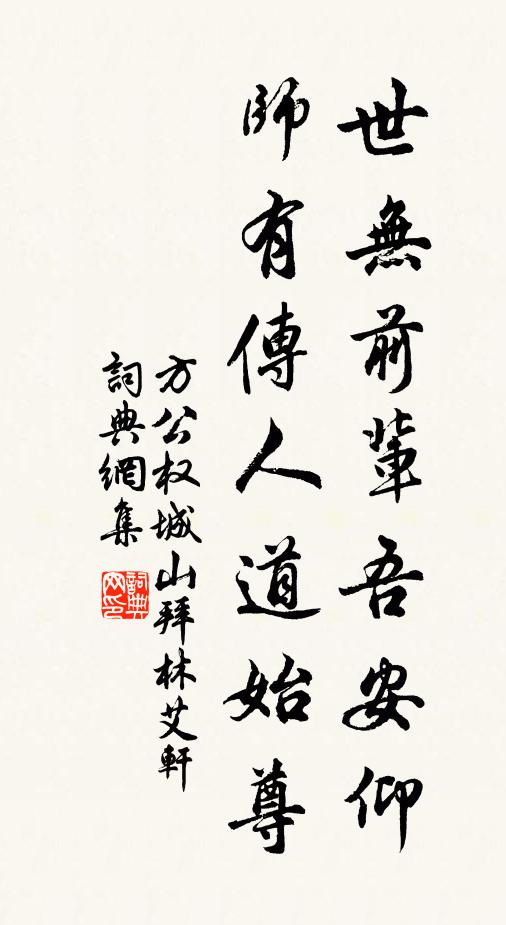 世無前輩吾安仰
師有傳人道始尊
方公权城山拜林艾軒
詞典網集
詞典網印